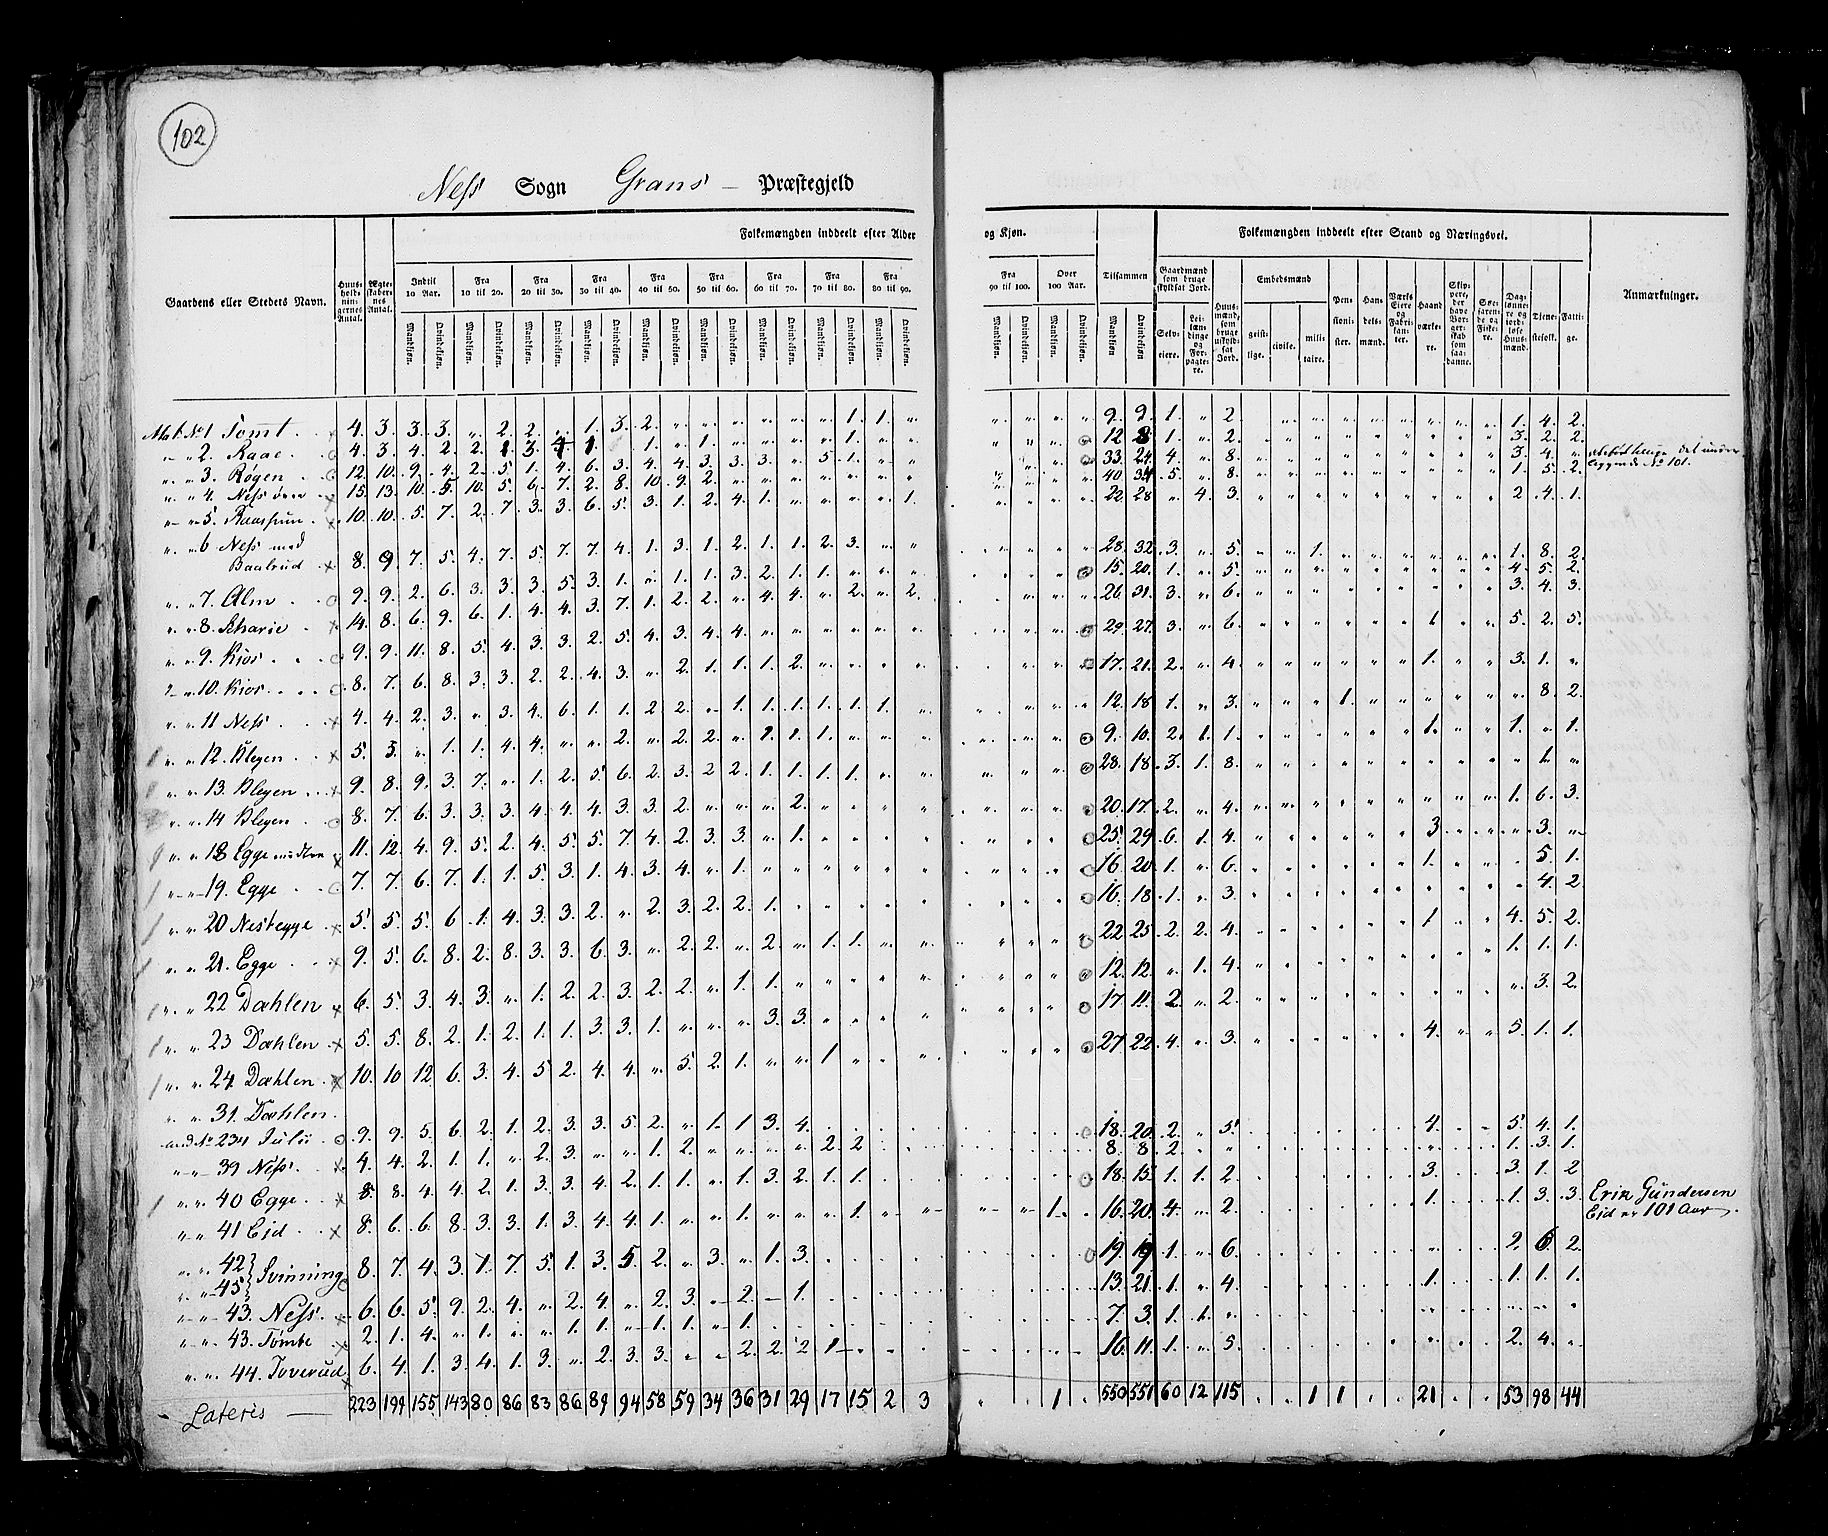 102
Ness Sogn Grans – Præstegjeld
Gaardens eller Stedets Navn.
Huusholdningernes Antal.
Ægteskabernes Antal.
Folkemængden inddeelt efter Alder og Kjøn.
Indtil 10 Aar. Fra 10 til 20. Fra 20 til 30. Fra 30 til 40. Fra 40 til 50. Fra 50 til 60. Fra 60 til 70. Fra 70 til 80. Fra 80 til 90. Fra 90 til 100. Over 100 Aar. Tilsammen
Mandkjøn. Qvindekjøn.
Folkemængden inddeelt efter Stand og Næringsvei.
Gaardmænd som bruge skyldsat Jord.
Selveiere.
Leilændinge og Forpagtere.
Huusmænd, som bruge uskyldsat Jord.
Embedsmænd
geistlige. civile. militaire.
Pensionister.
Handelsmænd.
Værks Eiere og Fabrikanter.
Haandværkere.
Skippere, der have Borgerskab som saadanne.
Søefarende og Fiskere.
Daglønnere og jordløse Huusmænd.
Tjenestefolk.
Fattige.
Anmærkninger.
Mat. No 1 Tomt . 4. 3. 3. 3. „ 2. 2. „ 1. 3. 2. „ „ „ „ „ „ 1. 1. „ „ „ „ „ 9. 9. 1. „ 2 1. 4. 2.
„ „ 2. Raae . 4. 3. 4. 2. 2. 1 3. 4 1 1. „ 1. 12 8 1. „ 2. 3. 2. 2.
„ „ 3. Røgen . 12. 10. 9. 4. 2. 5. 1. 4. 6. 3. 4. 4. 3. 3. 3. „ 5. 1. 33. 24. 4. „ 8. 3. 4.
„ „ 4. Ness øvre 15. 13. 10. 5. 10. 5. 6. 7. 2. 8. 10. 9. 2. 40. 34 5. „ 8. 1. 5. 2.
„ „ 5. 10. 10. 5. 7. 2. 7. 3. 3. 6. 5. 3. 1. 2. 4. 1. 1. 22. 28 „ 4. 3. 2. 4. 1.
„ „ 6 Ness med
Baalrud 8. 9. 7. 5. 4. 7. 5. 7. 7. 4. 1. 3. 1. 2. 1. 1. 2. 3. „ „ 28. 32. 3. „ 5. „ „ 1. 1. 8. 2.
„ „ 7. Alm . 9. 9. 2. 6. 3. 3. 3. 5. 3. 1. „ 1. 1. 3. 2. 1. 1. 15. 20. 1. „ 5. 4. 5. 2.
„ „ 8. Scharie . 14. 8. 6. 9. 6. 1. 4. 4. 3. 7. 1. 2. 2. „ 4. 4. „ 2. „ 2. 26. 31. 3. „ 6. 3. 4. 3.
„ „ 9. Kior . 9. 9. 11. 8. 5. 4. 3. 3. 2. 5. 4. 3. 4. 4. 29. 27. 3. „ 6. 1 5. 2. 5.
„ 10. Kior . 8. 7. 6. 8. 3. 3. 2. 2. 4. 3. „ 2. 1. 1. 1. 2. 17. 21. 2. „ 4. 1. 3. 1. „
„ „ 11 Ness . 4. 4. 2. 3. „ 3. 4. 6. 1. 1. 2 2. „ 1. 1. 1. 1. 1. 1. 12. 18 1. „ 3. 1. 8. 2.
„ „ 12. Blegen . 5. 3. „ 1. 1. 4. 4. „ „ 2. „ 2. 2. „ 1. 1. 9. 10. 2. 1. 1. 1. 1. „ 1.
„ „ 13. Blegen . 9. 8. 9. 3. 7. „ 1. 2. 5. 6. 2. 3. 2 2. 1. 1. 1. 1. 28. 18. 3. 1. 8. 1. „
„ „ 14 Blegen . 8. 7. 6. 3. 3. 3. 4. 4. 4. 3. 3. 2. „ „ 2. 20. 17. 2. „ 4. 1. 6. 3.
„ „ 18 Egge 11. 12. 4. 9. 5. 2. 4. 5. 5. 7. 4. 2. 3. 3. „ 1. 25. 29. 6. 1. 4. 3 3.
„ „ 19. Egge . 7. 7. 6. 7. 1. 1. 5. 3. 1. 4. 3. 4. „ 1. 16. 20. 1. „ 6. 1. 5. 1.
„ „ 20 Nestegge . 5. 5. 5. 6 1. 4. 3. 3. 2. „ 2. 3. 2. 2. 1. 16. 18. 1. „ 3. 4. 2.
„ „ 21. Egge . 9. 5. 6. 8. 2. 8. 3. 3. 6. 3. „ 2. 2. „ 2. „ 1. 1. 22 25. 2. 2. 4. 1 4. 5. 2.
„ „ 22 Dæhlen . 6. 5. 3. 4. 3. „ 1. 2. 2. 3. 2. 2. „ 1. 1. 12. 12. „ 1. 4. 1. 1. 1.
„ „ 23 Dæhlen . 5. 5. 8. 2. 1. 2. 1. 1. 3. 3. 1. „ „ „ 3. 3. 17. 11. 2. „ 2. 3. 2.
„ „ 24 Dæhlen . 10. 10 12. 6. 3. 4. 5. 2. 4. 4. „ 5. 2. 1. „ „ 1 27. 22. 4. „ 3. 4. 5. 1. 1.
„ „ 31. Dæhlen .
med No 234 Julii . 9. 9. 5. 6. 2. 1. 2. 3. 3. 5. 2. „ 1. 1 3. 4. 18. 20. 2. „ 5. 4. 5. 4. 1.
„ „ 39 Ness . 4. 4. 2. 1. 1. „ 2. 3. „ „ 1. 2. „ „ „ „ 2 2. 8. 8. 2. 1. 3. 1.
„ „ 40 Egge . 8. 8. 4. 4. 2. 1. 3. 3. 4. 2. 1. 1. „ 1. 3. 2. 1. 1. 18. 15. 1. 1. 2. 3. 3. 1. 2
„ „ 41 Eid . 8. 6. 6. 8. 3. 3. 1. 3. 4. 4. 1. „ „ 1. „ „ „ 1. „ „ „ „ 1. . 16. 20. 4. „ 2. 1. 1. 3. 3. Erik Gundersen
Eid er 101 Aar.
„ „ 42
„ „ 45 Svinning 8. 7. 4. 3. 1. 7. 5. 1. 3. 5 2. „ 3. „ 1. 3. 19. 19 1. „ 6. 2. 6. 2.
„ „ 43. Ness . 6. 6. 5. 9. 2. 4. „ 2. 4. „ 2. 3. „ 2. „ 1. 13. 21. 1. „ 4. 1. 1. 1. 1.
„ „ 43. Tomte . 2. 1. 4. „ 1. „ „ 1. 1. „ 1. 1. „ 1. 7. 3. 1. 1.
„ „ 44. Toverud 6. 4. 1. 3. 4. 1. 3. „ 2. 3. 3. „ „ 2. 2. 2 1 16. 11. 1. „ 5. 2. 4.
Lateris — 223 199 155 143 80 86 83 86 89 94 58 59 34 36 31 29 17 15 2 3 . . 1 . 550 551 60 12 115 . . 1 1 . . 21 . . 53 98 44